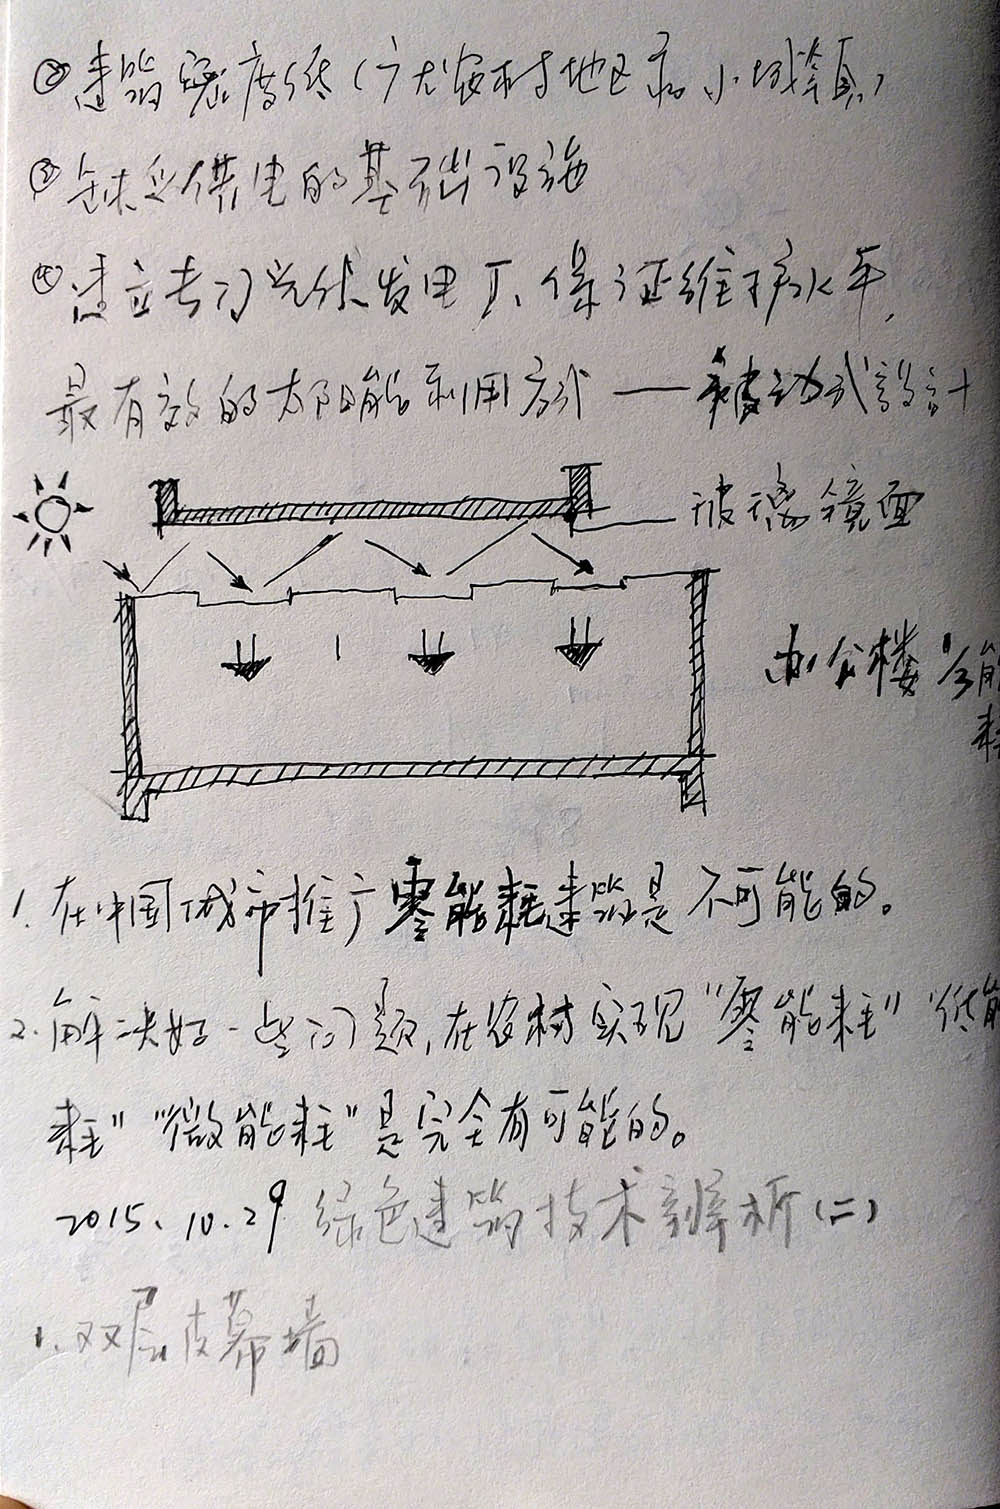 ②建筑密度低（广大农村地区和小城镇）
③缺乏供电的基础设施
④建立专门光伏发电厂、保证维护水平，
最有效的太阳能利用方式——被动式設計
玻璃镜面
办公楼1/3能
耗
1. 在中国城市推广零能耗建筑是不可能的。
2. 解决好一些问题，在农村实现“零能耗”“低能
耗”“微能耗”是完全有可能的。
2015、10.29 绿色建筑技术辨析(二)
1. 双层皮幕墙